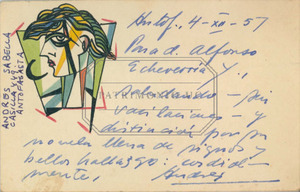 ANDRÉS SABELLA
CASILLA
ANTOFAGASTA
Antof. 4-XII-57
Para d. Alfonso
Echeverría Y.,
saludando - sin
vacilaciones - y
distinción por su
novela llena de signos y
bellos hallazgos: cordial-
mente,
Andrés